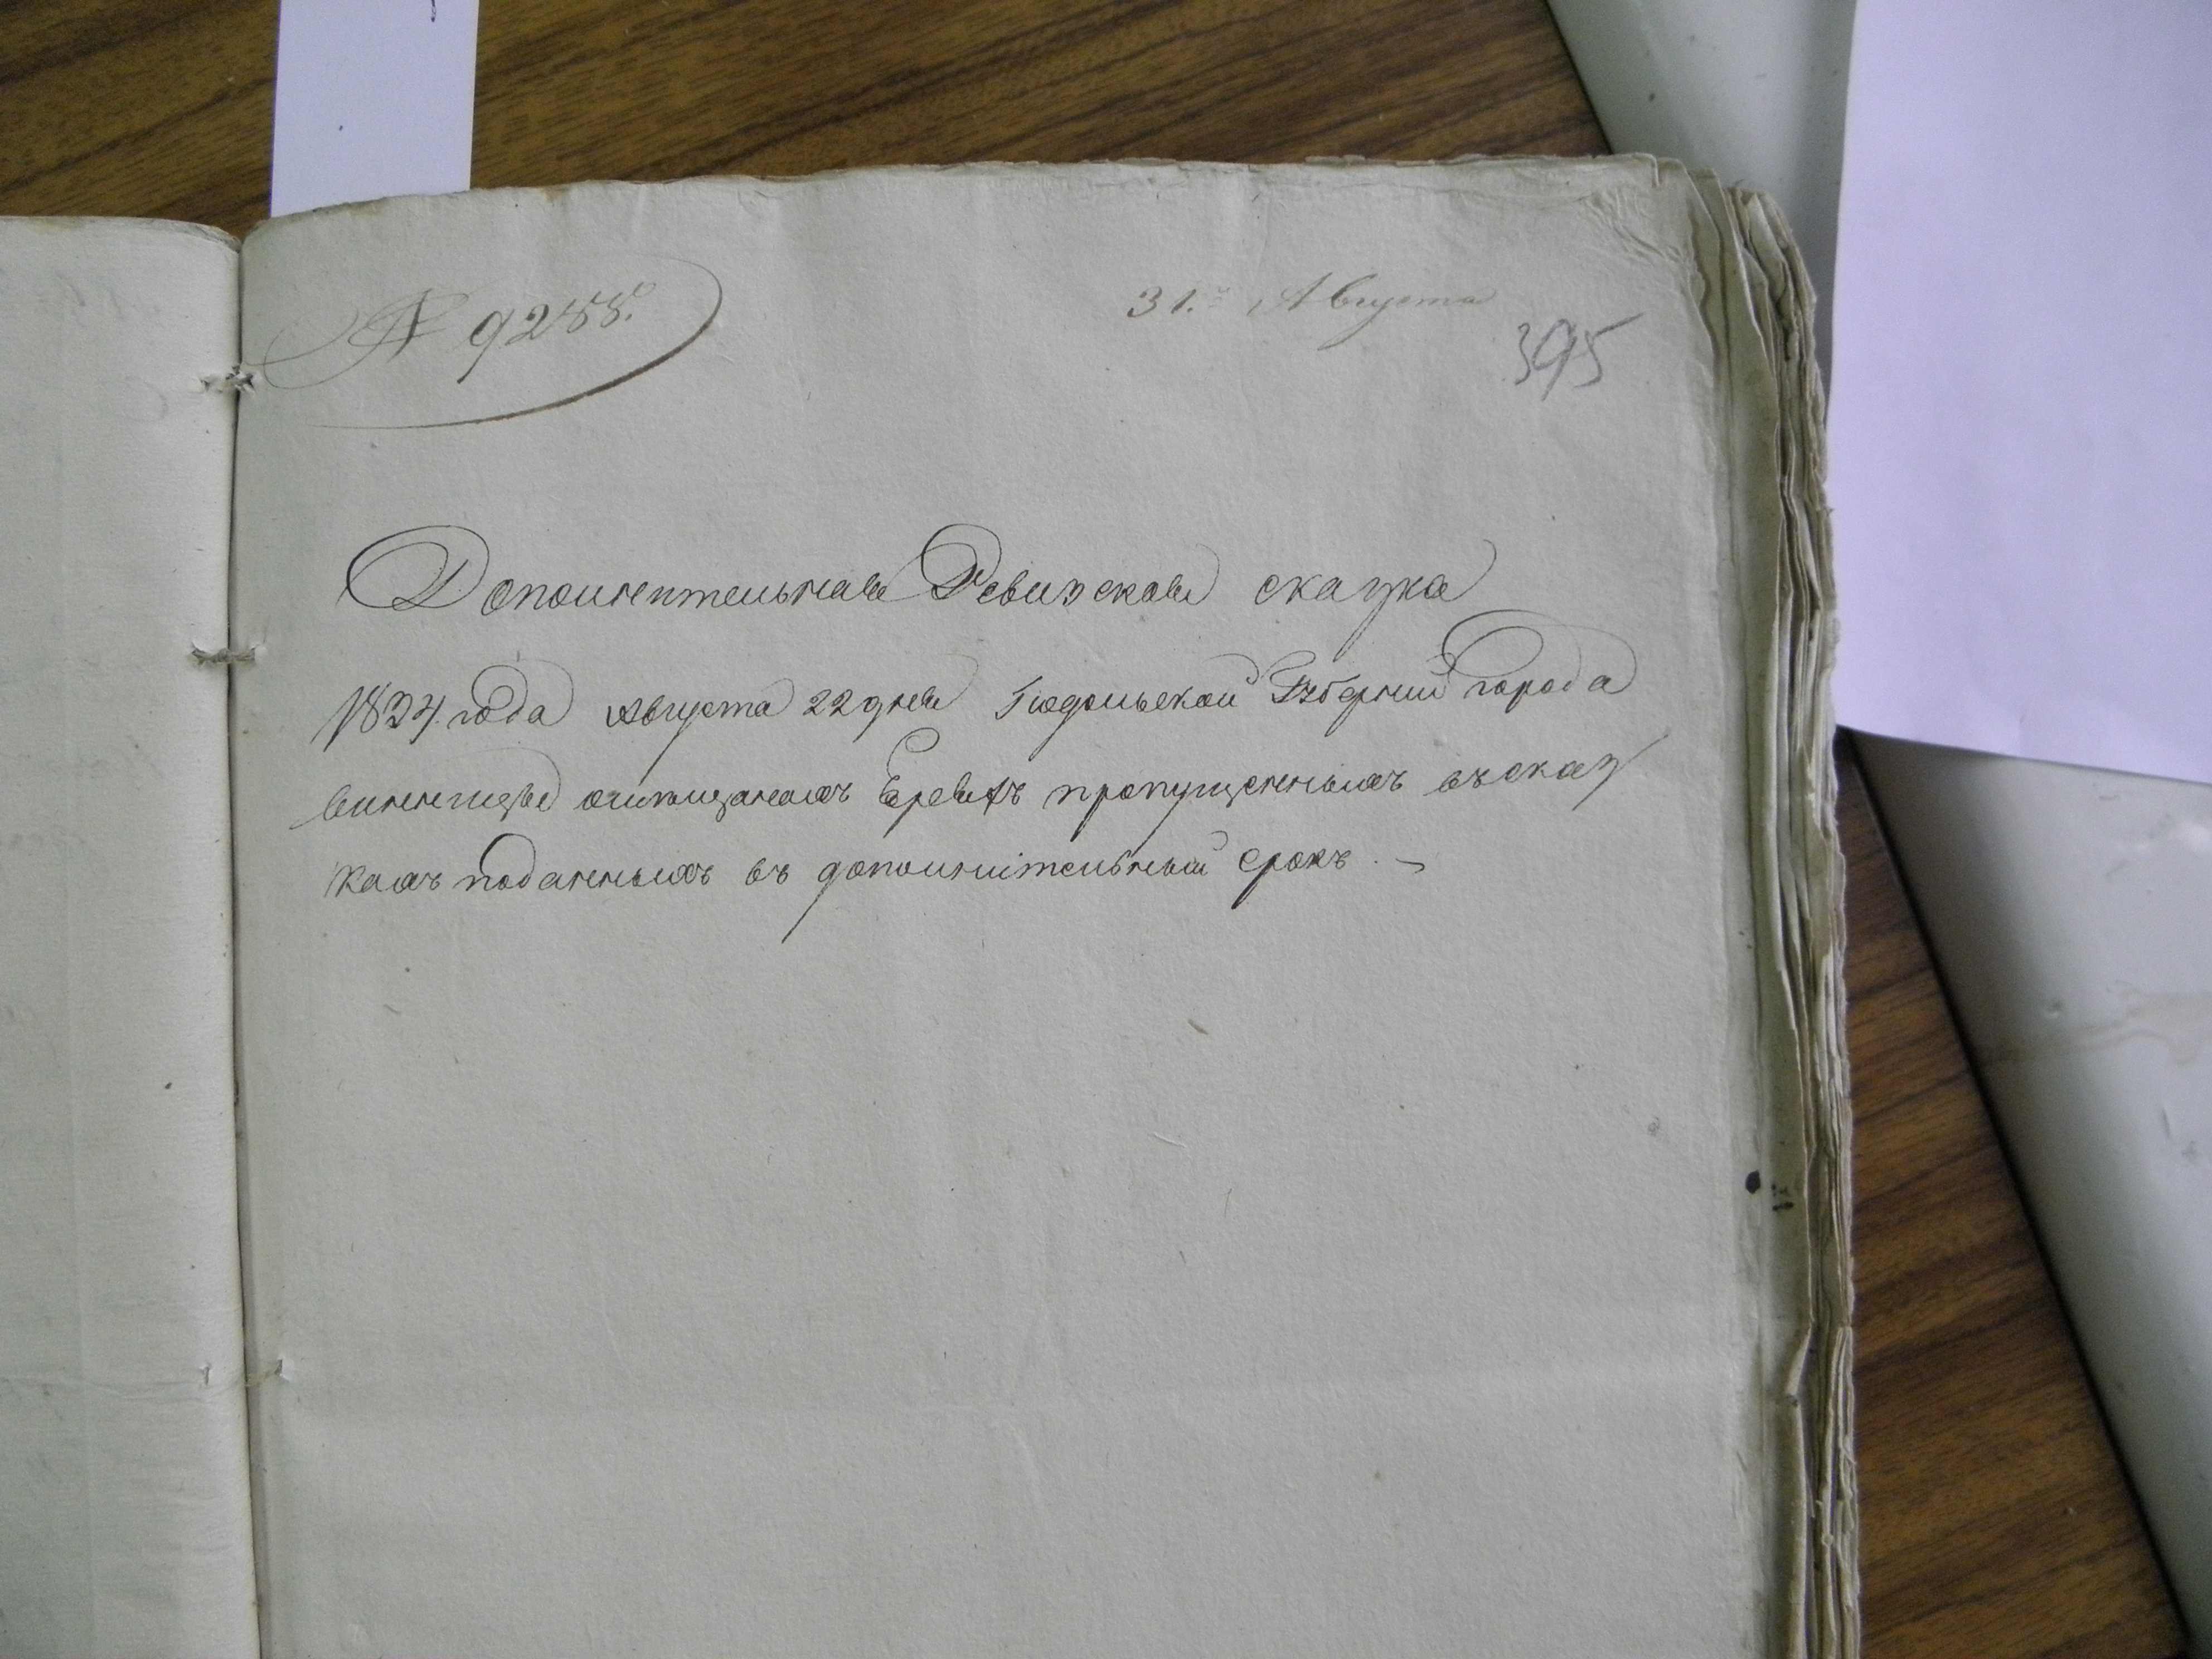 № 9288.
31. Августа
395
Дополнительная Ревизская сказка
1834 года Августа 22 дня Подольской Губернии города
винницы омищанахъ Евреяхъ пропущенныхъ въ сказ
кахъ поданныхъ въ дополнительный срокъ. —